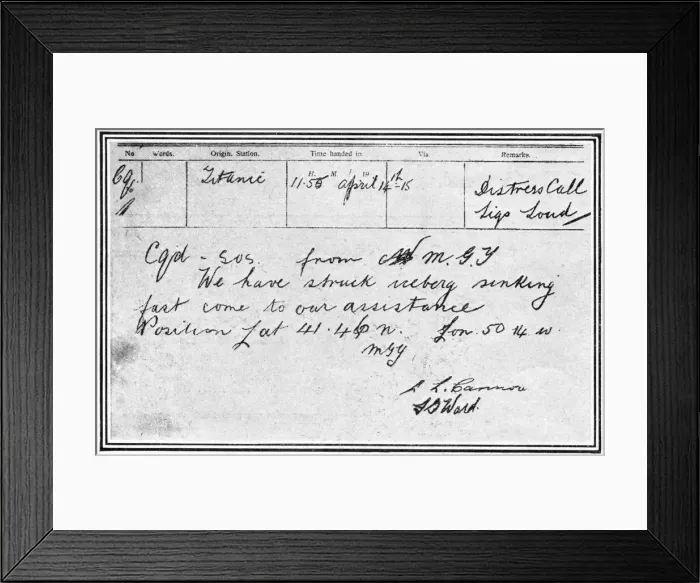 No Words. Origin. Station. Time handed in. Via. Remarks.
H. M.
Titanic 11.55 April 14th-15 Distress Call
Sigs Loud
Cqd - SOS. from M.G.Y
We have struck iceberg sinking
fast come to our assistance
Position Lat 41.46 n. Lon. 50 14. w.
MGY.